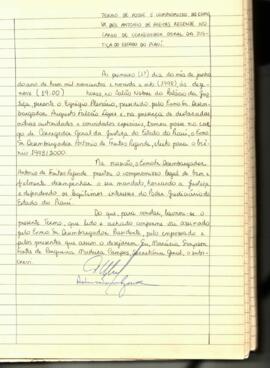 TERMO DE POSSE E COMPROMISSO DO
DES. ANTONIO DE FREITAS REZENDE NO
CARGO DE CORREGEDOR GERAL DA JUS-
TIÇA DO ESTADO DO PIAUÍ.
Ao primeiro (1º) dia do mês de junho
do ano de hum mil novecentos e noventa e oito (1998) às dez-
nove (19:00) horas, no Salão Nobre do Palácio da Jus-
tiça, presente o Egrégio Plenário, presidido pelo Exmo Sr. Desem-
bargador Augusto Falcão Lopes e na presença de destacadas
outras autoridades e convidados especiais, tomou posse no car-
go de Corregedor Geral da Justiça do Estado do Piauí, o Exmo
Sr. Desembargador Antonio de Freitas Rezende, eleito para o biê-
nio 1998/2000.
Na ocasião, o Exmo Sr. Desembargador
Antonio de Freitas Rezende prestou o compromisso legal de bem e
fielmente desempenhar o seu mandato, honrando a Justiça
e defendendo os legítimos interesses do Poder Judiciário do
Estado do Piauí.
Do que, para constar, lavrou-se o
presente Termo, que lido e achado conforme vai assinado
pelo Exmo Sr. Desembargador Presidente, pelo empossado e
pelos presentes que assim o desejarem. Eu,
Secretária Geral, o subs-
crevi.